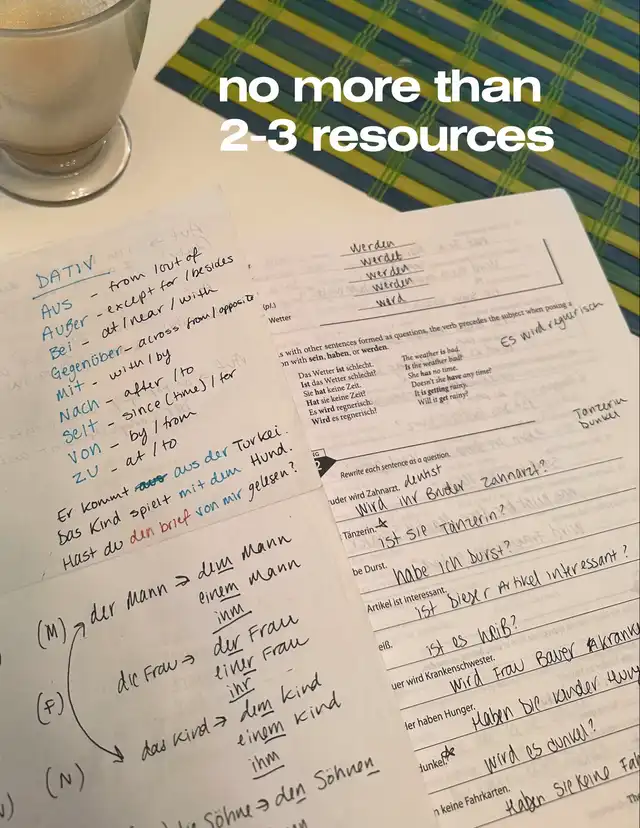 no more than
2-3 resources
DATIV
Aus - from / out of
Außer - except for / besides
Bei - at / near / with
Gegenüber - across from / opposite
Mit - with / by
Nach - after / to
Seit - since (time) / for
Von - by / from
Zu - at / to
Er kommt aus der Türkei.
Das Kind spielt mit dem Hund.
Hast du den brief von mir gelesen?
(M) der Mann → dem Mann
einem Mann
ihm
(F) die Frau → der Frau
einer Frau
ihr
(N) das Kind → dem Kind
einem Kind
ihm
die Söhne → den Söhnen
werden
werdet
werden
werden
(pl.) werd
Wetter
s with other sentences formed as questions, the verb precedes the subject when posing a
on with sein, haben, or werden.
Das Wetter ist schlecht. The weather is bad.
Ist das Wetter schlecht? Is the weather bad?
Sie hat keine Zeit. She has no time.
Hat sie keine Zeit? Doesn't she have any time?
Es wird regnerisch. It is getting rainy.
Wird es regnerisch? Will it get rainy?
Es wird regnerisch
Tänzerin
Dunkel
Rewrite each sentence as a question.
uder wird Zahnarzt. dentist
wird ihr Bruder Zahnarzt?
Tänzerin.
ist sie Tänzerin?
be Durst.
habe ich Durst?
Artikel ist interessant.
ist dieser Artikel interessant?
eiß.
ist es heiß?
uer wird Krankenschwester.
wird Frau Bauer kranke
der haben Hunger.
Haben die kinder Hung
dunkel.
wird es dunkel?
n keine Fahrkarten.
Haben sie keine Fah